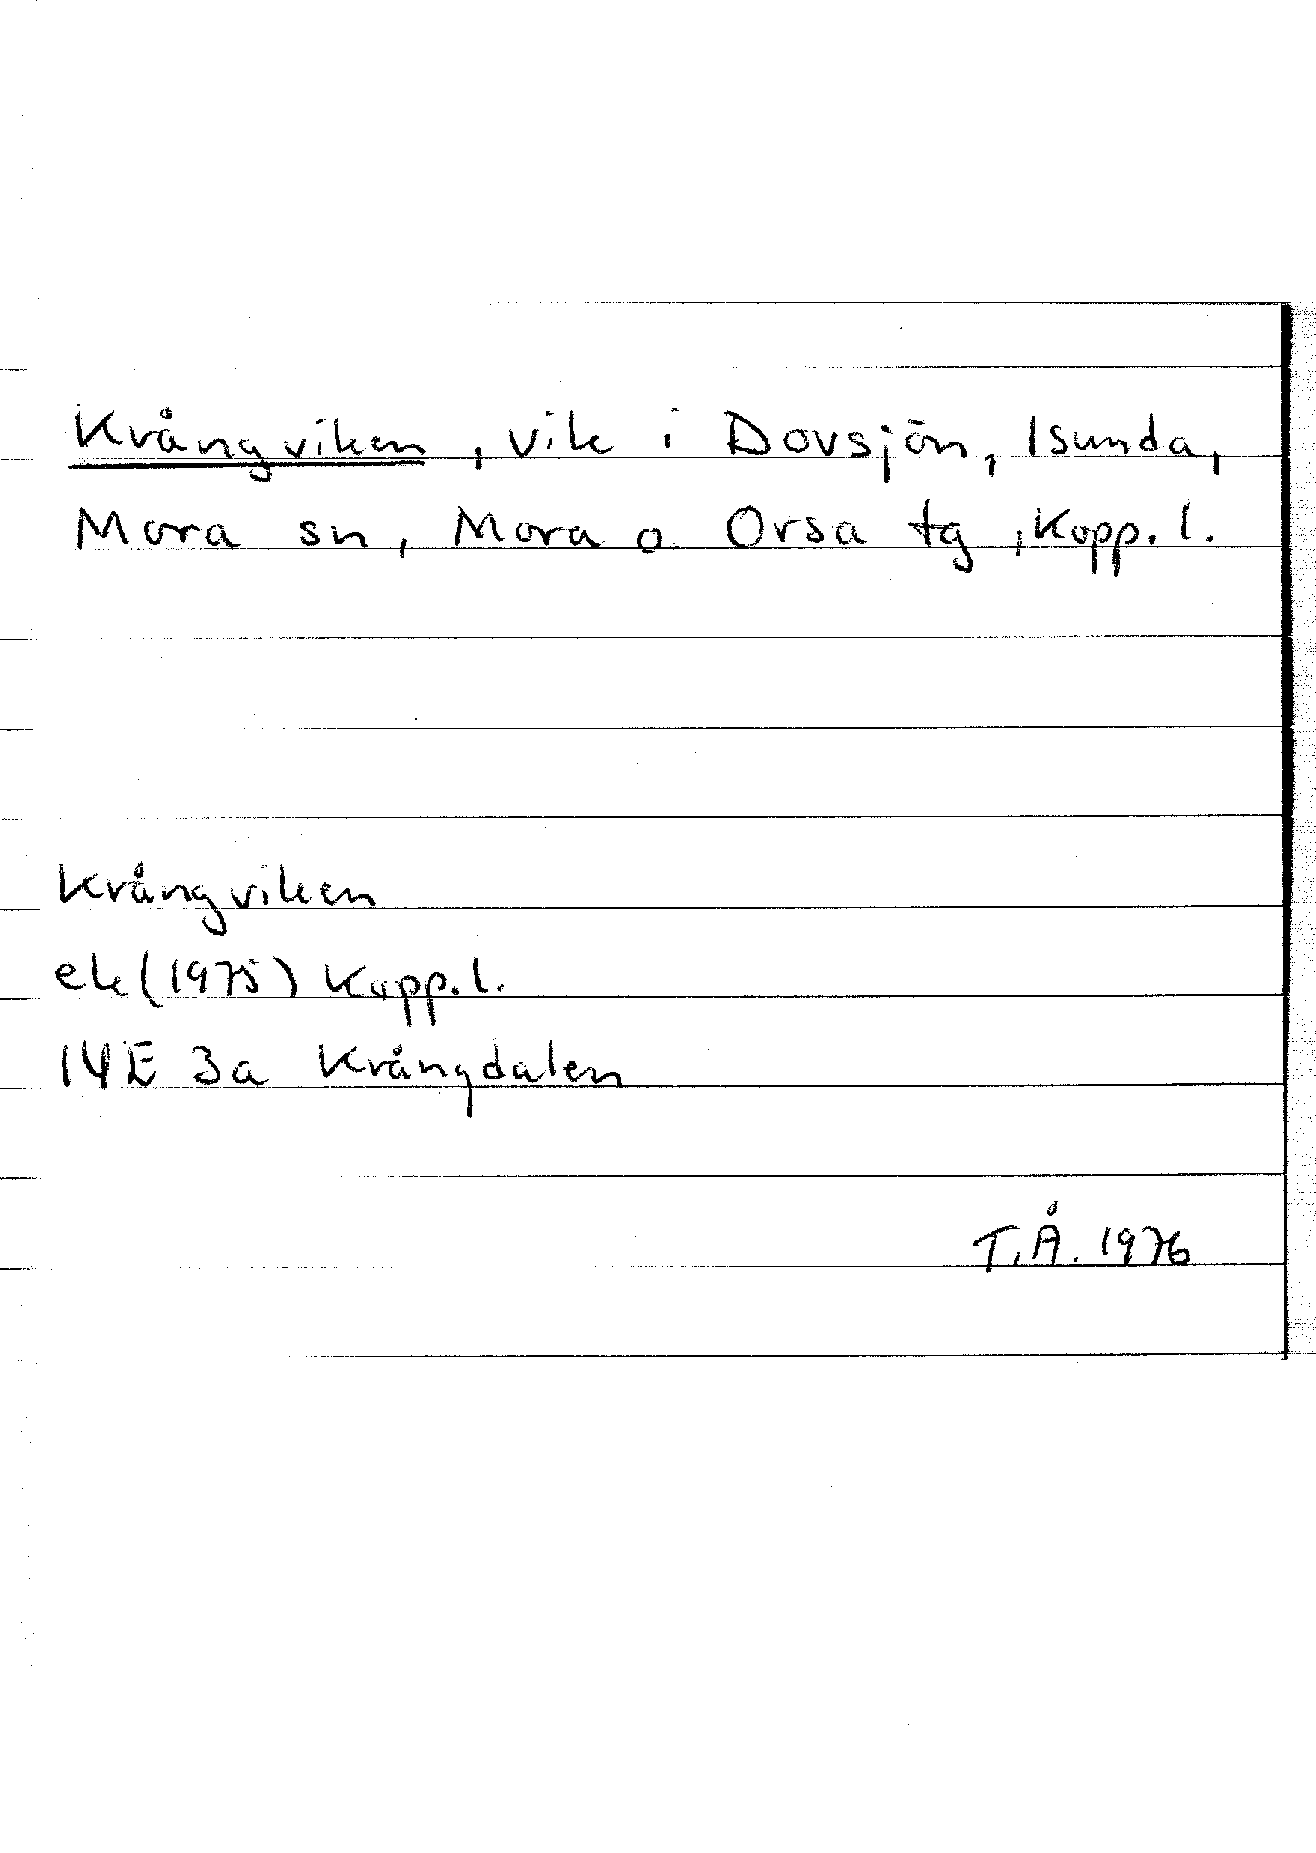 Krångviken, vik i Dovsjön, Isunda,
Mora sn, Mora o Orsa tg, Kopp. l.
Krångviken
ek (1975) Kopp. l.
14E 3a Krångdalen
T.Å. 1976